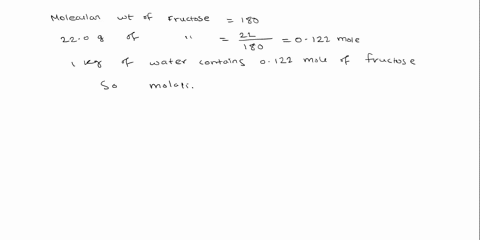 Molecular wt of Fructose = 180
22.0 g of " = 22/180 = 0.122 mole
1 kg of water contains 0.122 mole of fructose
So molali